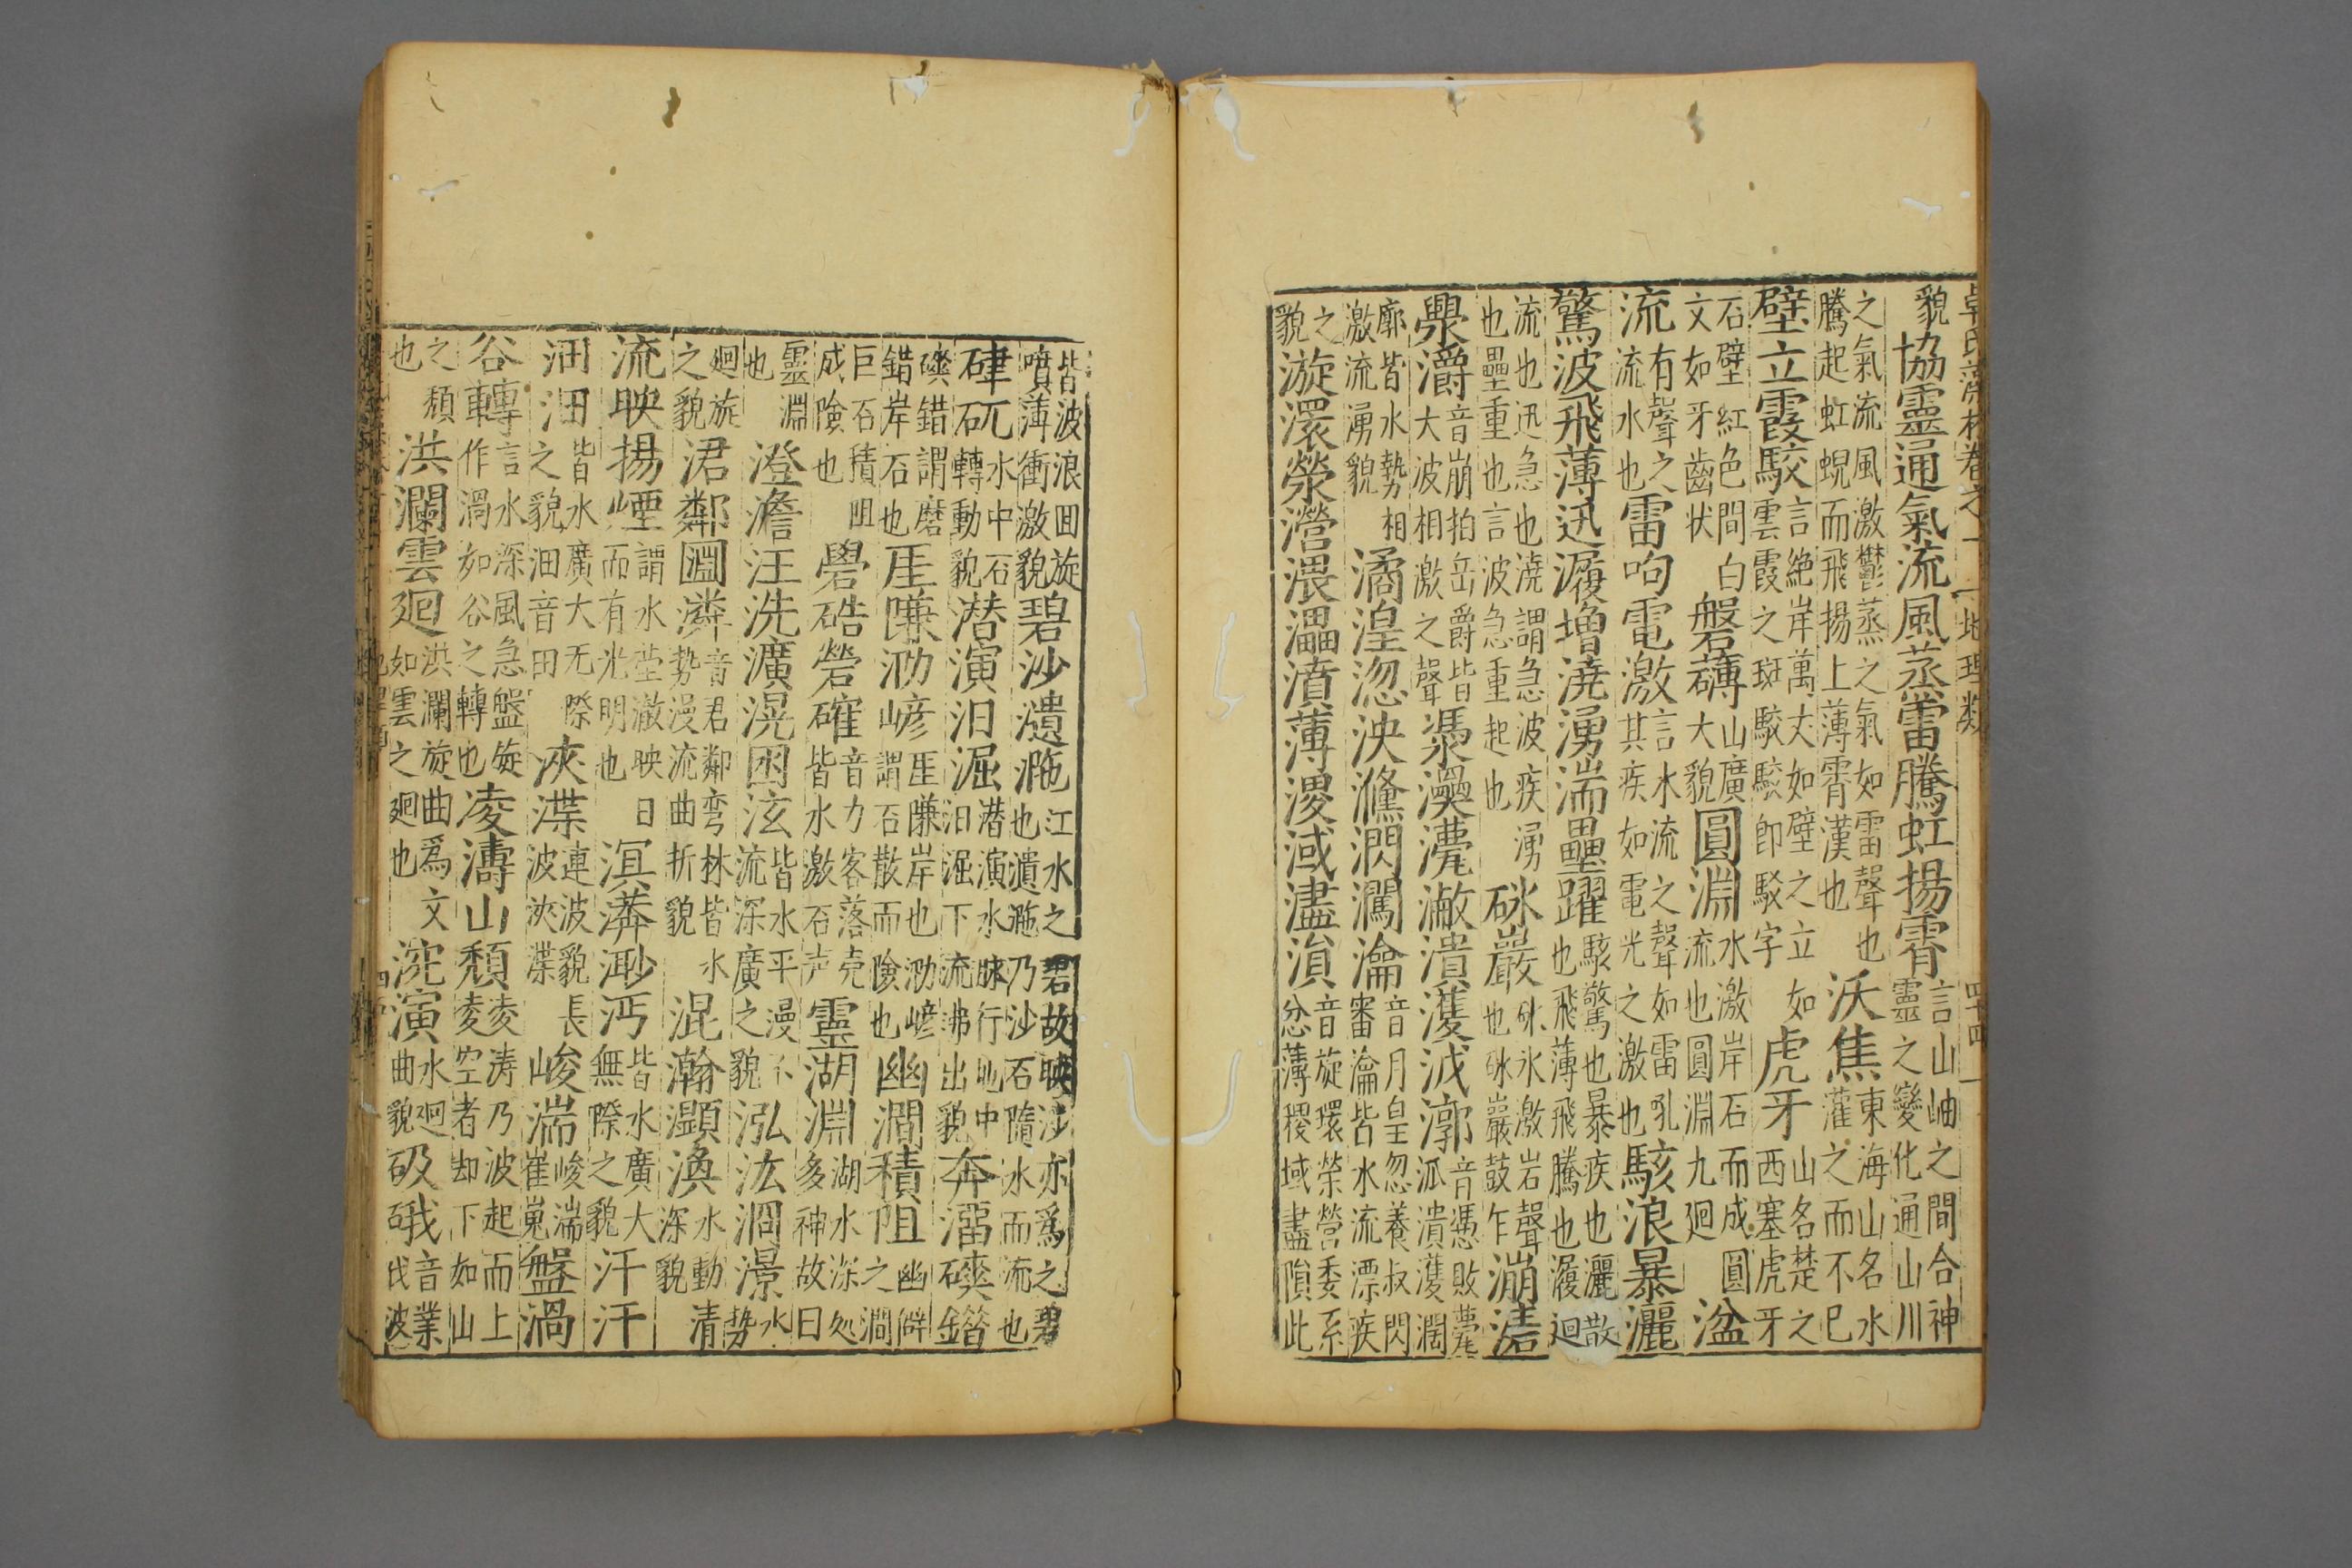 卓氏藻林卷之一 地理類 四十四
貌 協靈通氣流風蒸雷騰虹揚霄 言山岫之間合神靈之變化通山川
之氣流風激鬱蒸之氣如雷聲也騰起虹蜺而飛揚上薄霄漢也 沃焦 東海山名水灌之而不已
壁立霞駮 言絶岸萬丈如壁之立如雲霞之斑駮駮即駁字 虎牙 山名楚之西塞虎牙
石壁紅色間白文如牙齒状 磐礴 山廣大貌 圓淵 水激岸石而成圓流也圓淵九廻 湓
流 有聲之流水也 雷呴電激 言水流之聲如雷吼其疾如電光之激也 駭浪暴灑
驚波飛薄迅澓增澆湧湍壘躍 駭驚也暴疾也灑散也飛薄飛騰也澓迴
流也迅急也澆謂急波疾湧也壘重也言波急重起也 砯巖 砯水激岩聲也砯巖鼓乍 漰湱
澩灂 音崩拍岳爵皆大波相激之聲 澳潎潰濩泧漷 音憑敗 泒潰濩濶
廓皆水勢相激流湧貌 潏湟淴泱滫潣瀹 音月皇忽養叔閃審瀹皆水流漂疾
之貌 漩澴滎瀯渨濆薄溭淢濜溳 音旋環榮營委系忿薄稷域盡隕此
皆波浪囬旋噴薄衝激貌 碧沙瀢㳿 江水之碧故映沙亦爲之碧也瀢㳿乃沙石隨水而流也
硉矹 水中石轉動貌 潜演汨淈 潜演水脉行地中汨淈下流沸出貌 奔溜磢錯
磢錯謂磨錯岸石也 厓隒泐嵃 厓隒岸也泐嵃謂石散而險也 幽澗積阻 幽僻之澗
巨石積阻成險也 礐硞礐確 音力客落壳皆水激石声 靈湖淵 湖水深処多神故曰
靈淵也 澄澹汪洸瀇滉囦泫 皆水平漫不流深廣之貌 泓汯浻澋 水势
廻旋之貌 涒鄰㘤潾 音君鄰弯林皆水势漫流曲折貌 混瀚灝渙 水動清深貌
流映揚㷑 謂水瑩澈映日而有光明也 溟漭渺沔 皆水廣大無際之貌 汗汗
沺沺 皆水廣大无際之貌沺音田 浹渫 連波貌長波浹渫 峻湍 峻湍崔嵬 盤渦
谷轉 言水深風急盤旋作渦如谷之轉也 凌濤山頹 凌涛乃波起而上凌空者却下如山
之頹也 洪瀾雲廻 洪瀾旋曲爲文如雲之廻也 涴演 水廻曲貌 砐硪 音業伐波